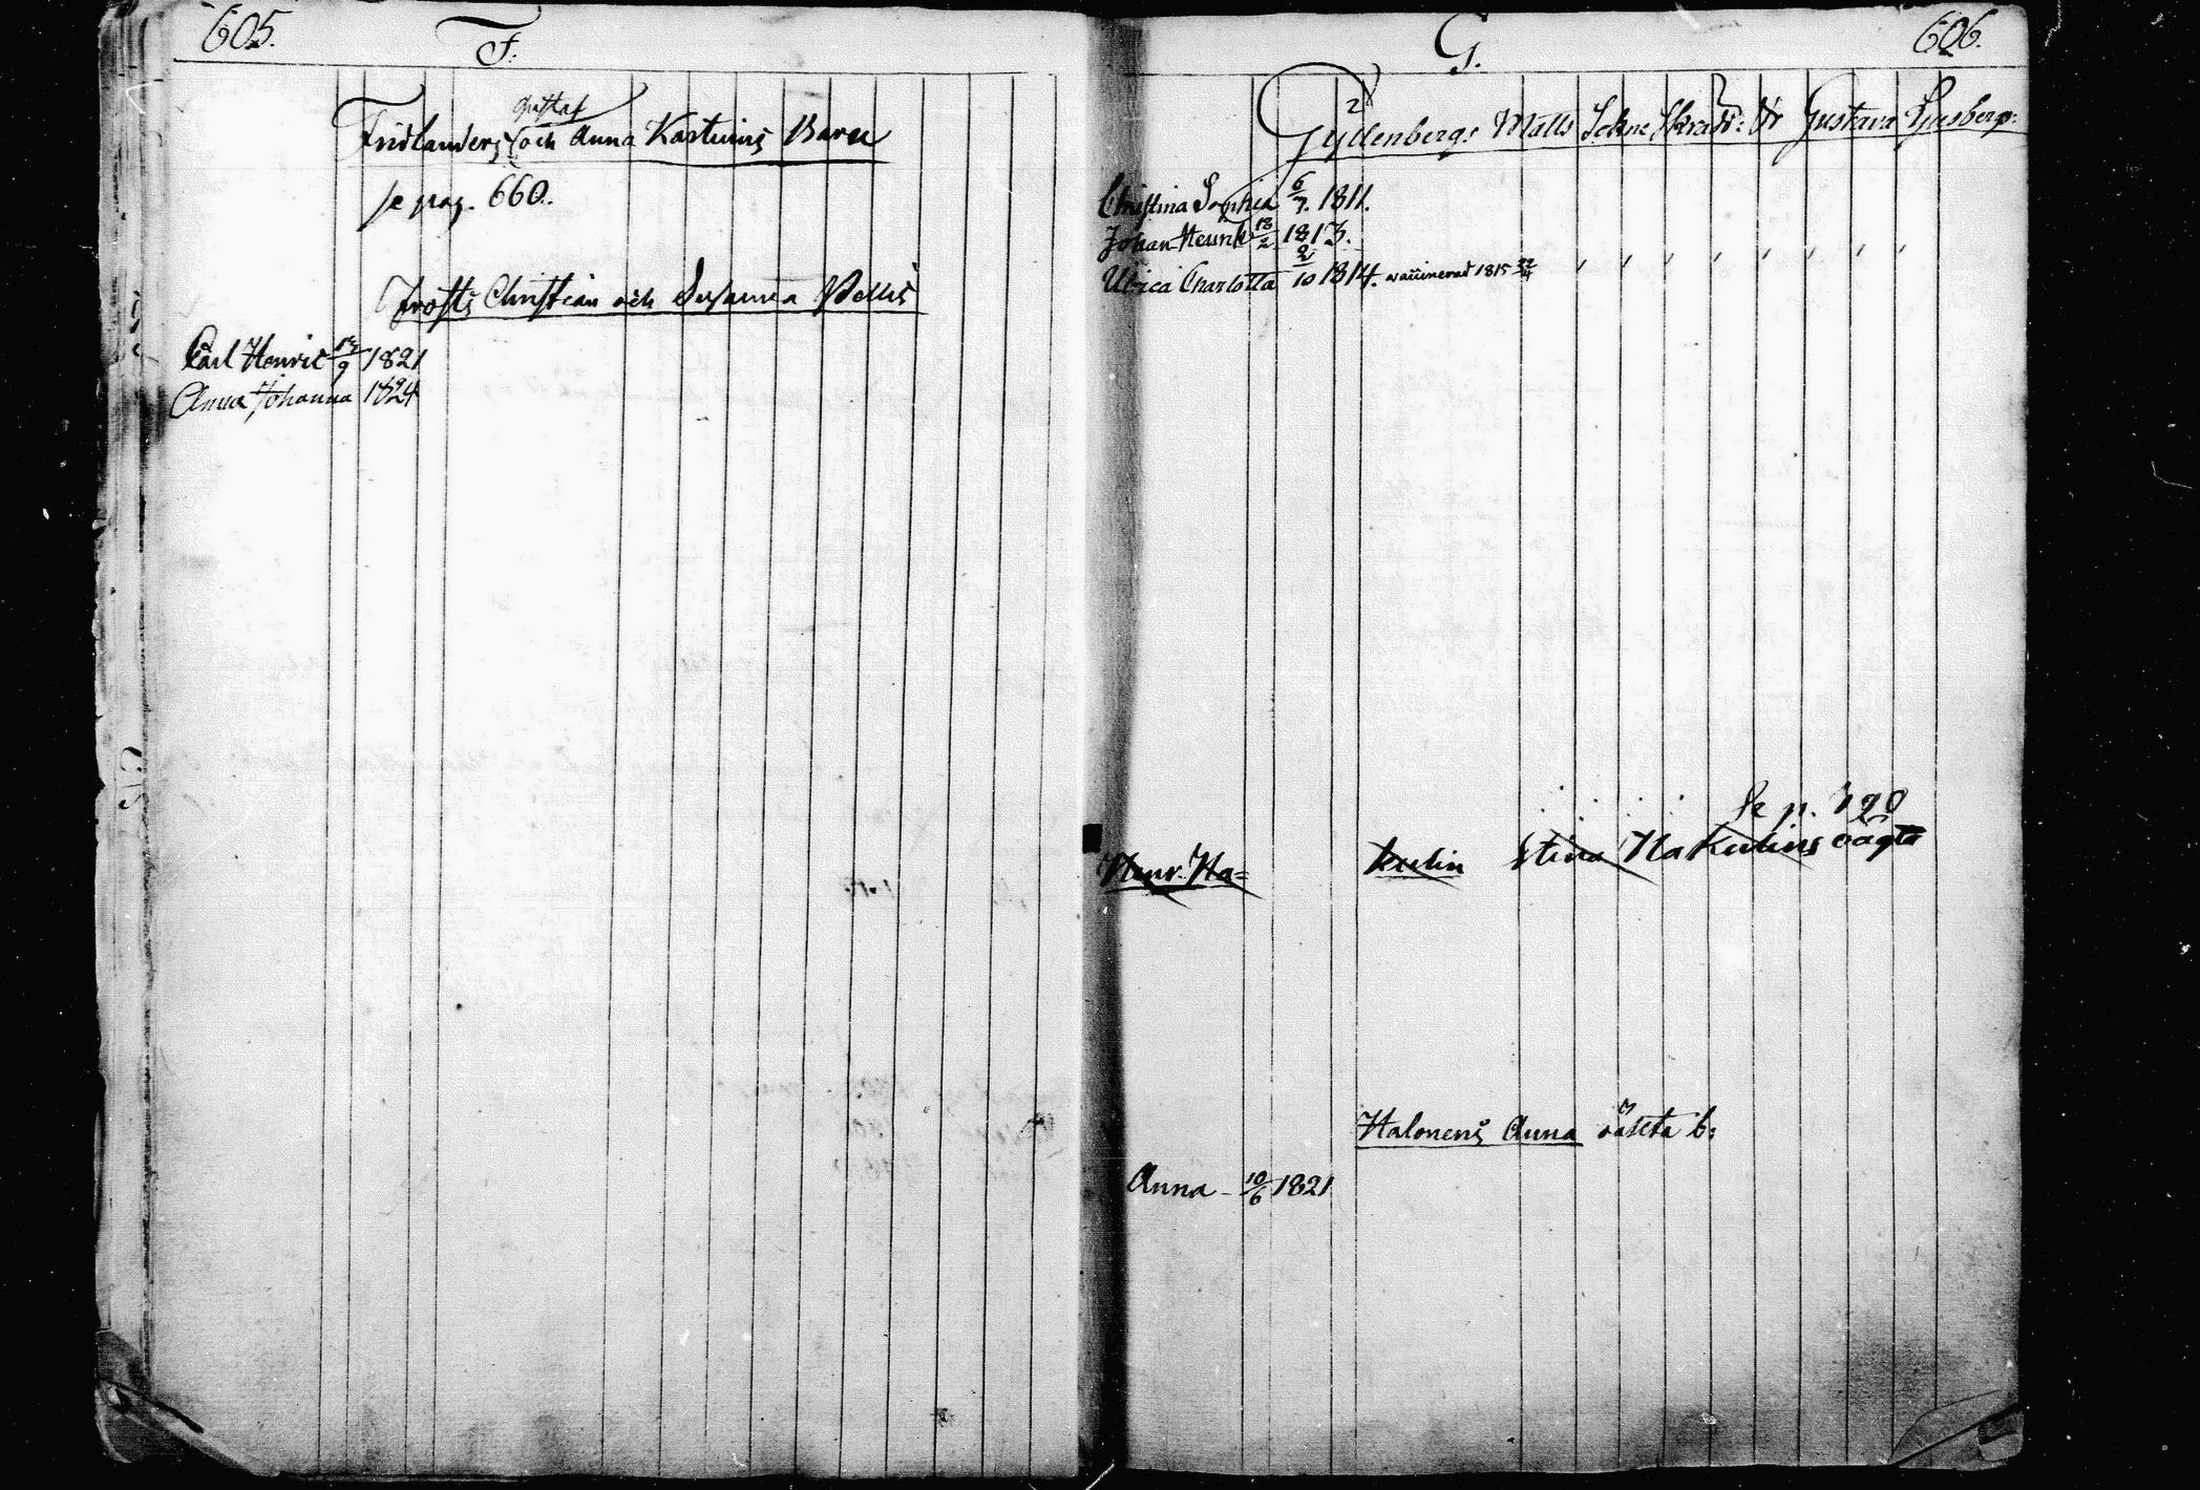 605.
F.
Gustaf
Fridlanders och Anna Kastuins Barn
se pag. 660.
Frosts Christian och Susanna Pellis
Carl Henric 1821
Anna Johanna 1824
G.
606.
Gyllenbergs Matts Gustava
Christina Sophia 6/7. 1811.
Johan Henrik 18/2 1813.
Ulrica Charlotta 2/10 1814. vaccinerad 1815 22/4
Se p. 720
Henr. Ha= kulin Stina Hakulins oägta
Halonens Anna oäkta b:
Anna - 10/6 1821